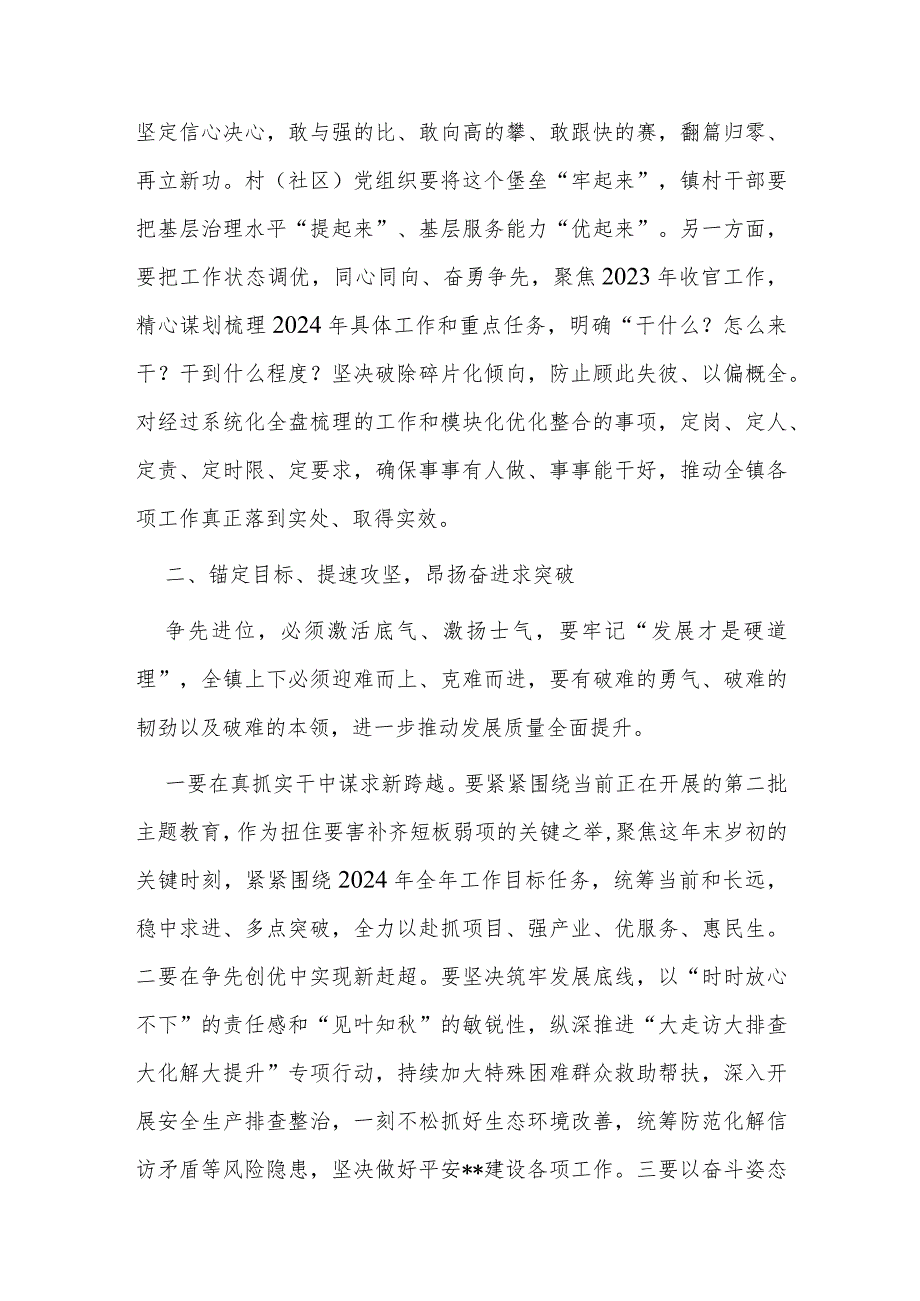 坚定信心决心，敢与强的比、敢向高的攀、敢跟快的赛，翻篇归零、
再立新功。村（社区）党组织要将这个堡垒“牢起来”，镇村干部要
把基层治理水平“提起来”、基层服务能力“优起来”。另一方面，
要把工作状态调优，同心同向、奋勇争先，聚焦2023年收官工作，
精心谋划梳理2024年具体工作和重点任务，明确“干什么？怎么来
干？干到什么程度？坚决破除碎片化倾向，防止顾此失彼、以偏概全。
对经过系统化全盘梳理的工作和模块化优化整合的事项，定岗、定人、
定责、定时限、定要求，确保事事有人做、事事能干好，推动全镇各
项工作真正落到实处、取得实效。
二、锚定目标、提速攻坚，昂扬奋进求突破
争先进位，必须激活底气、激扬士气，要牢记“发展才是硬道
理”，全镇上下必须迎难而上、克难而进，要有破难的勇气、破难的
韧劲以及破难的本领，进一步推动发展质量全面提升。
一要在真抓实干中谋求新跨越。要紧紧围绕当前正在开展的第二批
主题教育，作为扭住要害补齐短板弱项的关键之举，聚焦这年末岁初的
关键时刻，紧紧围绕2024年全年工作目标任务，统筹当前和长远，
稳中求进、多点突破，全力以赴抓项目、强产业、优服务、惠民生。
二要在争先创优中实现新赶超。要坚决筑牢发展底线，以“时时放心
不下”的责任感和“见叶知秋”的敏锐性，纵深推进“大走访大排查
大化解大提升”专项行动，持续加大特殊困难群众救助帮扶，深入开
展安全生产排查整治，一刻不松抓好生态环境改善，统筹防范化解信
访矛盾等风险隐患，坚决做好平安**建设各项工作。三要以奋斗姿态